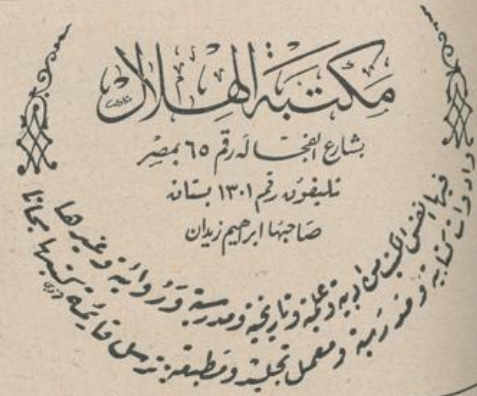 مكتبة الهلال
بشارع الفجالة رقم ٦٥ بمصر
تليفون رقم ١٣٠١ بستان
صاحبها ابرهيم زيدان
فيها انفس الكتب من ادبية وعلمية وتاريخية ومدرسية وروائية وغيرها
وادوات كتابية ومدرسية ومعمل تجليد ومطبعة ترسل قايمة كتبها مجانا